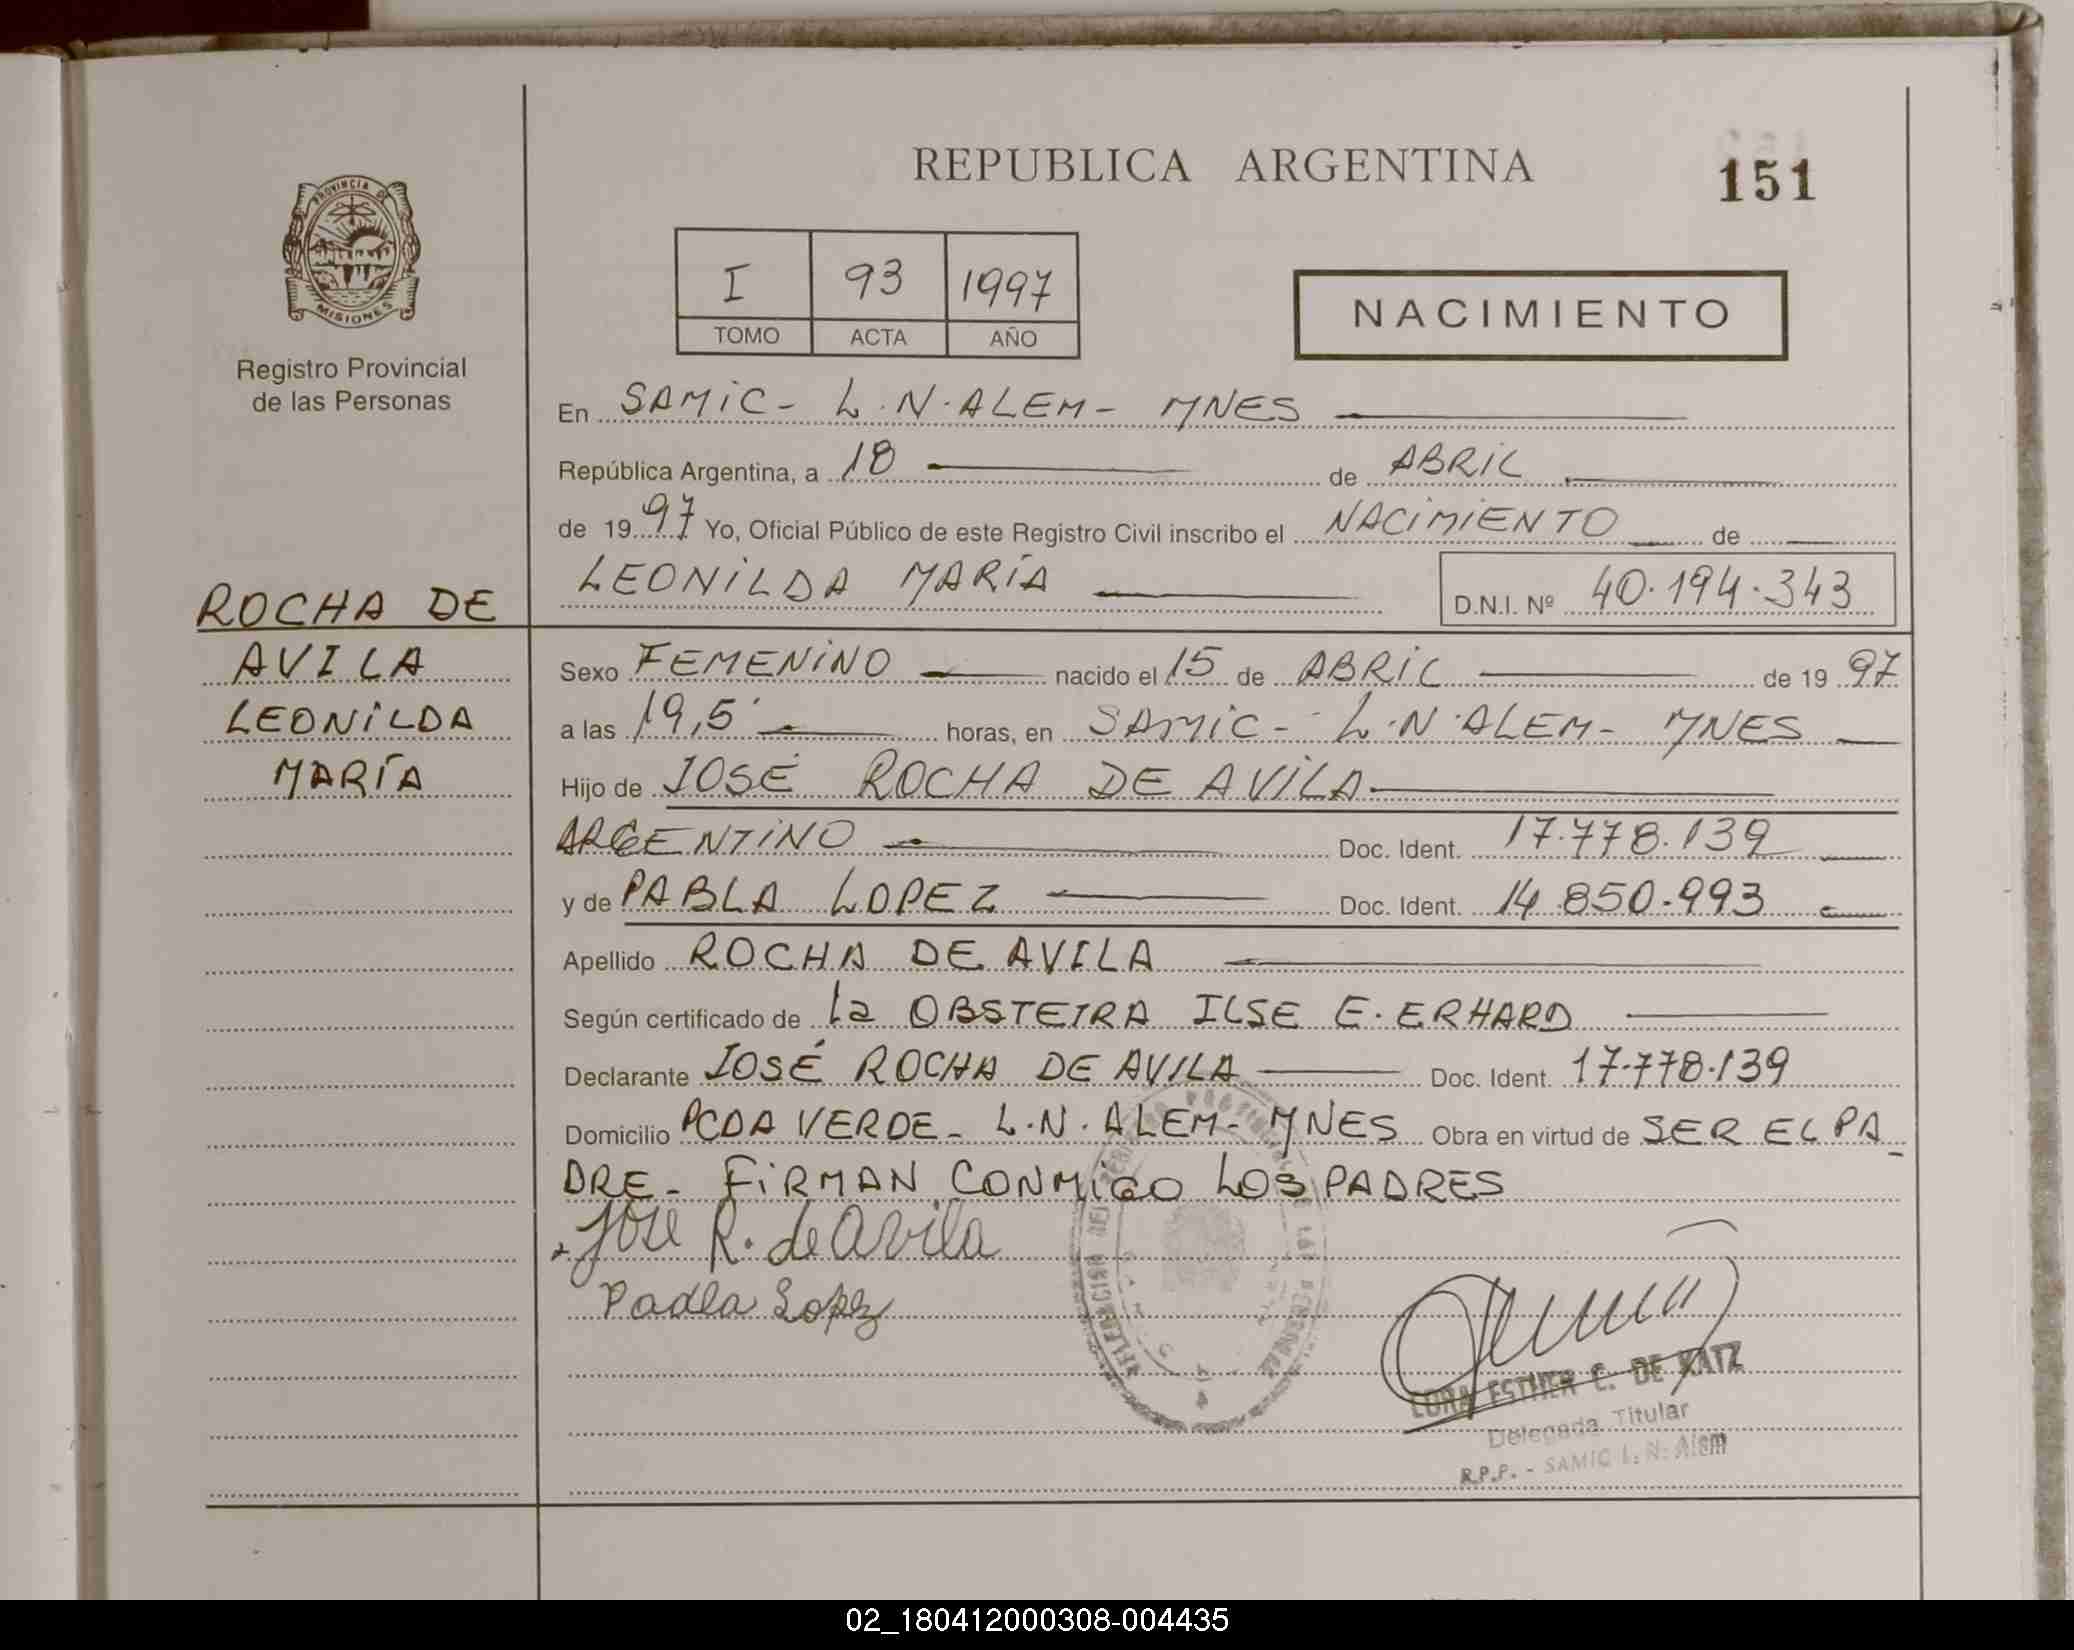 REPUBLICA ARGENTINA
151
PROVINCIA DE
MISIONES
Registro Provincial
de las Personas
I 93 1997
TOMO ACTA AÑO
NACIMIENTO
En SAMIC - L.N.ALEM - MNES
República Argentina, a 18 de ABRIL
de 1997 Yo, Oficial Público de este Registro Civil inscribo el NACIMIENTO de
LEONILDA MARÍA D.N.I. Nº 40.194.343
ROCHA DE
AVILA
LEONILDA
MARÍA
Sexo FEMENINO nacido el 15 de ABRIL de 19 97
a las 19,5' horas, en SAMIC - L.N.ALEM - MNES
Hijo de JOSÉ ROCHA DE AVILA
ARGENTINO Doc. Ident. 17.778.139
y de PABLA LOPEZ Doc. Ident. 14.850.993
Apellido ROCHA DE AVILA
Según certificado de la OBSTETRA ILSE E. ERHARD
Declarante JOSÉ ROCHA DE AVILA Doc. Ident. 17.778.139
Domicilio PCDA VERDE - L.N.ALEM - MNES Obra en virtud de SER EL PA
DRE - FIRMAN CONMIGO LOS PADRES
Jose R. de Avila
Pabla Lopez
ESTHER C. DE KATZ
Delegada Titular
R.P.P. - SAMIC L. N. Alem
02_180412000308-004435